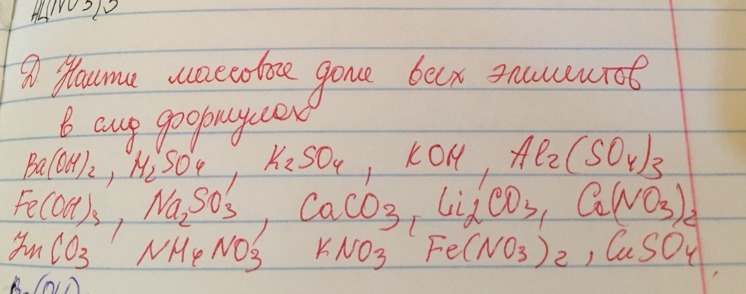 Al(NO3)3
2) Найти массовые доли всех элементов
в след формулах
Ba(OH)2, H2SO4, K2SO4, KOH, Al2(SO4)3
Fe(OH)3, Na2SO3, CaCO3, Li2CO3, Ca(NO3)2
ZnCO3 NH4NO3 KNO3 Fe(NO3)2, CuSO4
Ba(OH)